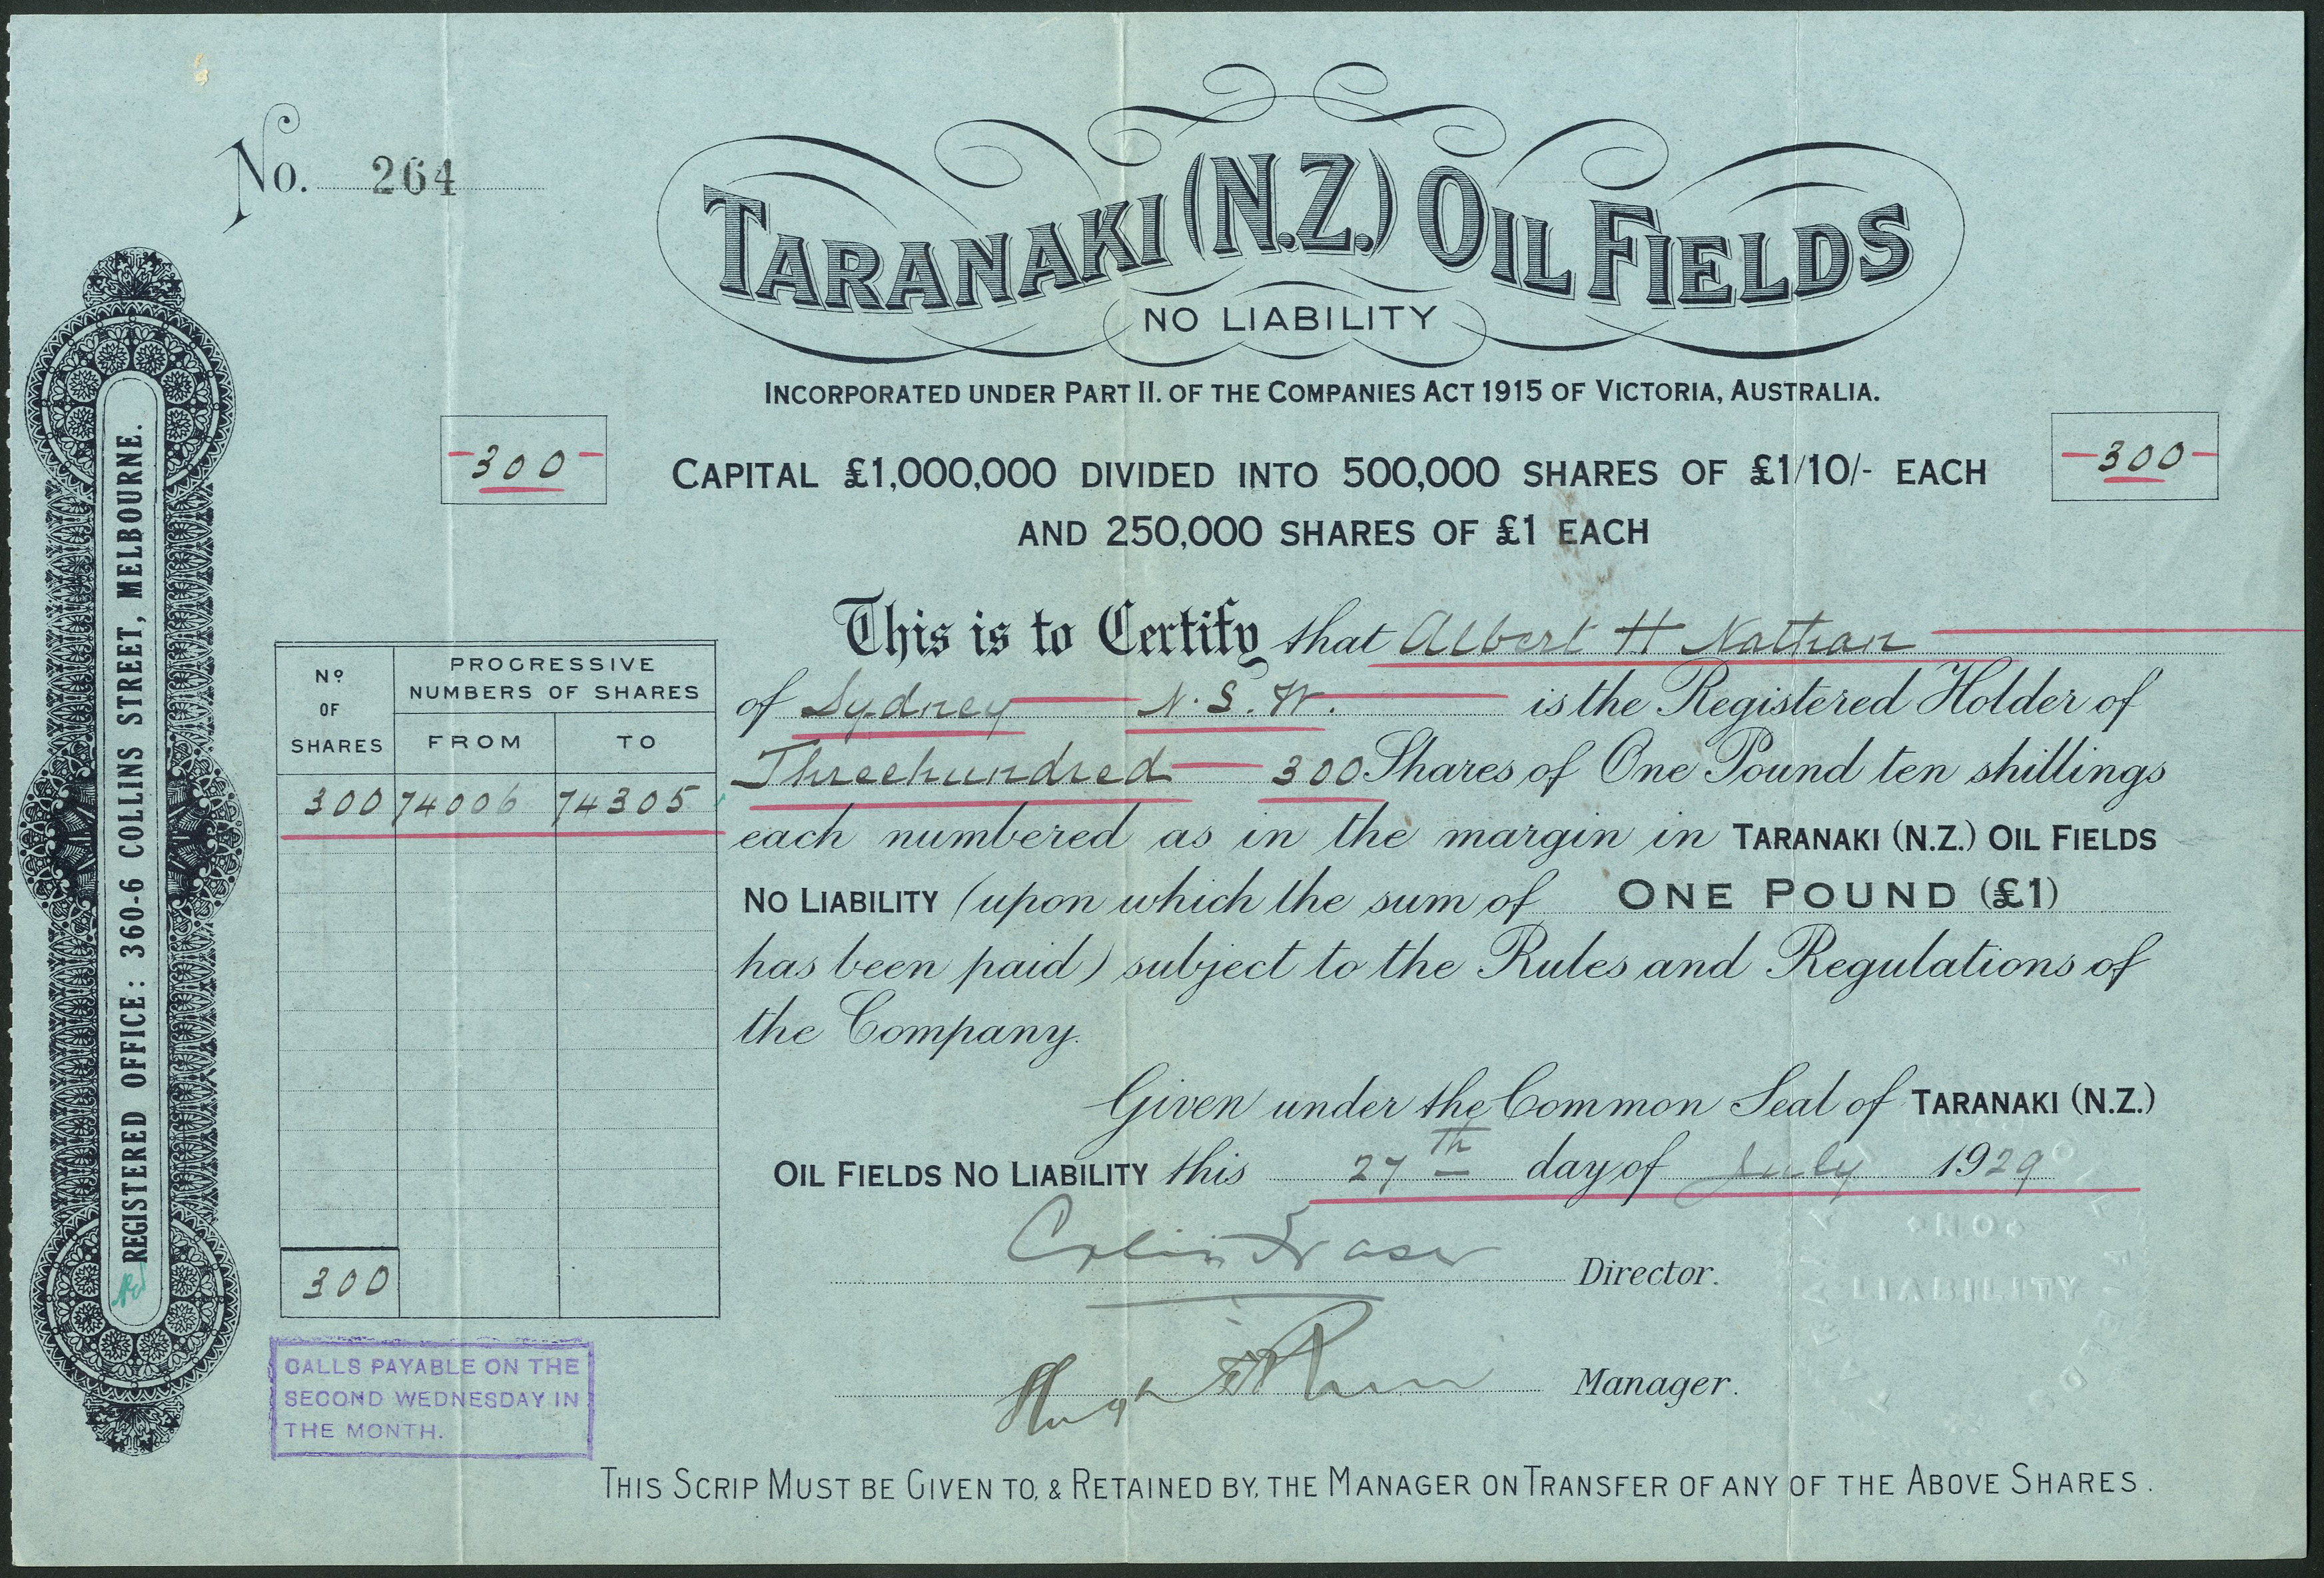 No. 264
TARANAKI (N.Z.) OIL FIELDS
NO LIABILITY
INCORPORATED UNDER PART II. OF THE COMPANIES ACT 1915 OF VICTORIA, AUSTRALIA.
-300-
CAPITAL £1,000,000 DIVIDED INTO 500,000 SHARES OF £1/10/- EACH
-300-
AND 250,000 SHARES OF £1 EACH
REGISTERED OFFICE: 360-6 COLLINS STREET, MELBOURNE.
No OF SHARES
PROGRESSIVE NUMBERS OF SHARES
FROM TO
300 74006 74305
300
This is to Certify that Albert H Nathan
of Sydney N.S.W. is the Registered Holder of
Threehundred 300 Shares of One Pound ten shillings
each numbered as in the margin in TARANAKI (N.Z.) OIL FIELDS
NO LIABILITY (upon which the sum of ONE POUND (£1)
has been paid) subject to the Rules and Regulations of
the Company.
Given under the Common Seal of TARANAKI (N.Z.)
OIL FIELDS NO LIABILITY this 27th day of July 1929
Colin Fraser Director.
Hugh Manager.
LIABILITY
CALLS PAYABLE ON THE
SECOND WEDNESDAY IN
THE MONTH.
THIS SCRIP MUST BE GIVEN TO, & RETAINED BY, THE MANAGER ON TRANSFER OF ANY OF THE ABOVE SHARES.